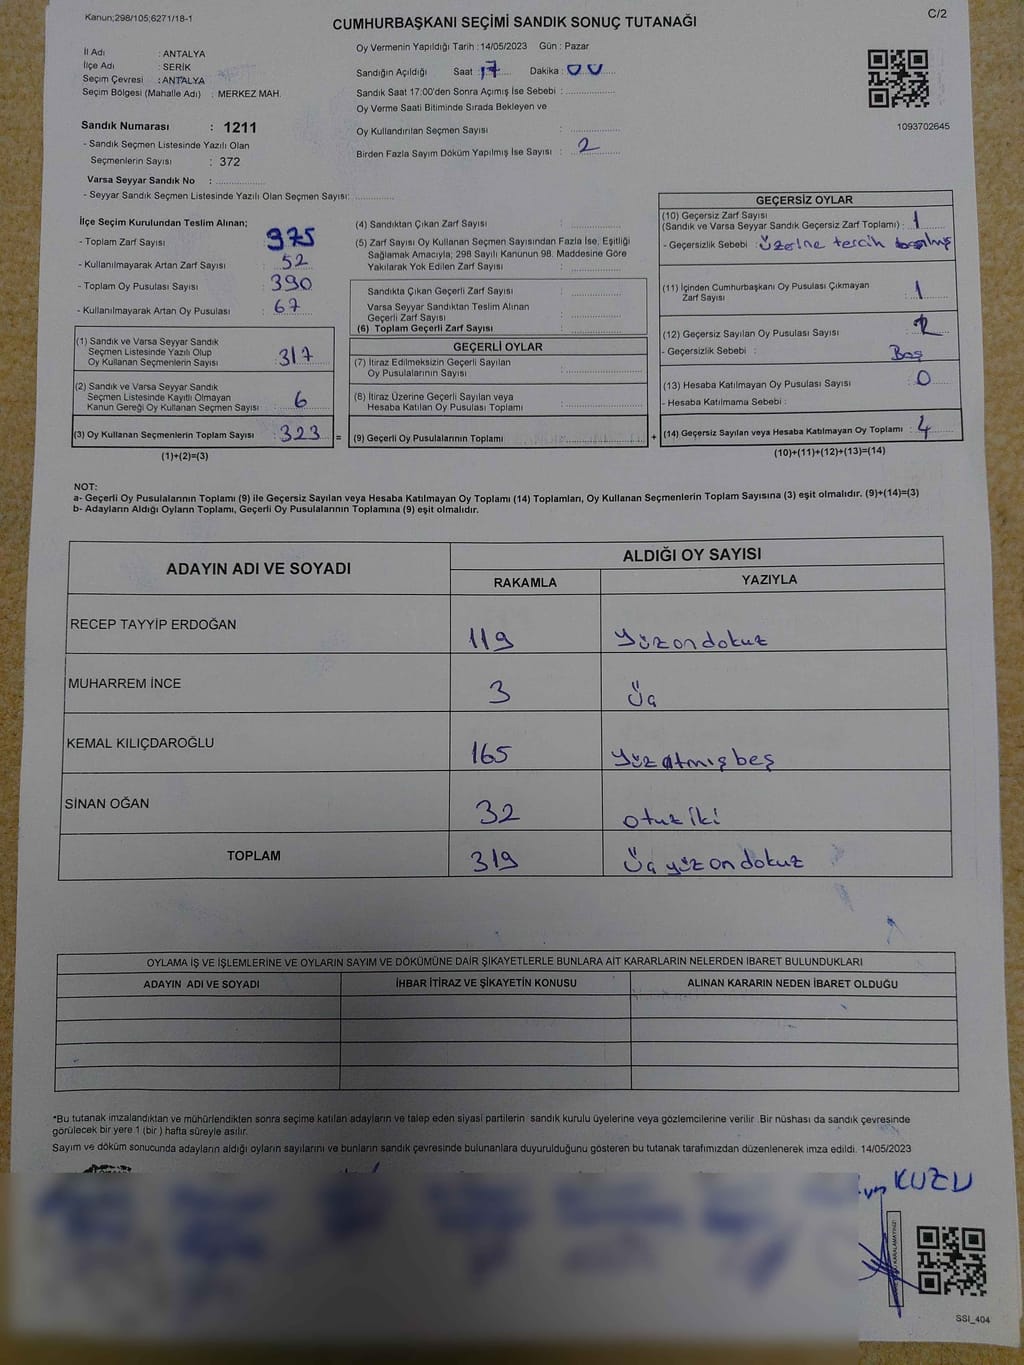 Kanun;298/105;6271/18-1
C/2
CUMHURBAŞKANI SEÇİMİ SANDIK SONUÇ TUTANAĞI
İl Adı : ANTALYA
İlçe Adı : SERİK
Seçim Çevresi : ANTALYA
Seçim Bölgesi (Mahalle Adı) : MERKEZ MAH.
Oy Vermenin Yapıldığı Tarih : 14/05/2023 Gün : Pazar
Sandığın Açıldığı Saat : 17 Dakika : 00
Sandık Saat 17:00'den Sonra Açımış İse Sebebi :
Oy Verme Saati Bitiminde Sırada Bekleyen ve
Oy Kullandırılan Seçmen Sayısı :
Birden Fazla Sayım Döküm Yapılmış İse Sayısı : 2
1093702645
Sandık Numarası : 1211
- Sandık Seçmen Listesinde Yazılı Olan
Seçmenlerin Sayısı : 372
Varsa Seyyar Sandık No :
- Seyyar Sandık Seçmen Listesinde Yazılı Olan Seçmen Sayısı:
İlçe Seçim Kurulundan Teslim Alınan;
- Toplam Zarf Sayısı : 375
- Kullanılmayarak Artan Zarf Sayısı : 52
- Toplam Oy Pusulası Sayısı : 390
- Kullanılmayarak Artan Oy Pusulası : 67
(1) Sandık ve Varsa Seyyar Sandık
Seçmen Listesinde Yazılı Olup
Oy Kullanan Seçmenlerin Sayısı : 317
(2) Sandık ve Varsa Seyyar Sandık
Seçmen Listesinde Kayıtlı Olmayan
Kanun Gereği Oy Kullanan Seçmen Sayısı : 6
(3) Oy Kullanan Seçmenlerin Toplam Sayısı : 323
(1)+(2)=(3)
=
(4) Sandıktan Çıkan Zarf Sayısı :
(5) Zarf Sayısı Oy Kullanan Seçmen Sayısından Fazla İse, Eşitliği
Sağlamak Amacıyla; 298 Sayılı Kanunun 98. Maddesine Göre
Yakılarak Yok Edilen Zarf Sayısı :
Sandıkta Çıkan Geçerli Zarf Sayısı :
Varsa Seyyar Sandıktan Teslim Alınan
Geçerli Zarf Sayısı :
(6) Toplam Geçerli Zarf Sayısı :
GEÇERLİ OYLAR
(7) İtiraz Edilmeksizin Geçerli Sayılan
Oy Pusulalarının Sayısı :
(8) İtiraz Üzerine Geçerli Sayılan veya
Hesaba Katılan Oy Pusulası Toplamı :
(9) Geçerli Oy Pusulalarının Toplamı :
+
GEÇERSİZ OYLAR
(10) Geçersiz Zarf Sayısı
(Sandık ve Varsa Seyyar Sandık Geçersiz Zarf Toplamı) : 1
- Geçersizlik Sebebi : Üzerine tercih basılmış
(11) İçinden Cumhurbaşkanı Oy Pusulası Çıkmayan
Zarf Sayısı : 1
(12) Geçersiz Sayılan Oy Pusulası Sayısı : 2
- Geçersizlik Sebebi : Boş
(13) Hesaba Katılmayan Oy Pusulası Sayısı : 0
- Hesaba Katılmama Sebebi :
(14) Geçersiz Sayılan veya Hesaba Katılmayan Oy Toplamı : 4
(10)+(11)+(12)+(13)=(14)
NOT:
a- Geçerli Oy Pusulalarının Toplamı (9) ile Geçersiz Sayılan veya Hesaba Katılmayan Oy Toplamı (14) Toplamları, Oy Kullanan Seçmenlerin Toplam Sayısına (3) eşit olmalıdır. (9)+(14)=(3)
b- Adayların Aldığı Oyların Toplamı, Geçerli Oy Pusulalarının Toplamına (9) eşit olmalıdır.
ADAYIN ADI VE SOYADI
ALDIĞI OY SAYISI
RAKAMLA YAZIYLA
RECEP TAYYİP ERDOĞAN 119 Yüzondokuz
MUHARREM İNCE 3 Üç
KEMAL KILIÇDAROĞLU 165 Yüzatmışbeş
SİNAN OĞAN 32 otuz iki
TOPLAM 319 Üç yüz on dokuz
OYLAMA İŞ VE İŞLEMLERİNE VE OYLARIN SAYIM VE DÖKÜMÜNE DAİR ŞİKAYETLERLE BUNLARA AİT KARARLARIN NELERDEN İBARET BULUNDUKLARI
ADAYIN ADI VE SOYADI İHBAR İTİRAZ VE ŞİKAYETİN KONUSU ALINAN KARARIN NEDEN İBARET OLDUĞU
*Bu tutanak imzalandıktan ve mühürlendikten sonra seçime katılan adayların ve talep eden siyasi partilerin sandık kurulu üyelerine veya gözlemcilerine verilir. Bir nüshası da sandık çevresinde
görülecek bir yere 1 (bir) hafta süreyle asılır.
Sayım ve döküm sonucunda adayların aldığı oyların sayılarını ve bunların sandık çevresinde bulunanlara duyurulduğunu gösteren bu tutanak tarafımızdan düzenlenerek imza edildi. 14/05/2023
KUZU
SSI_404